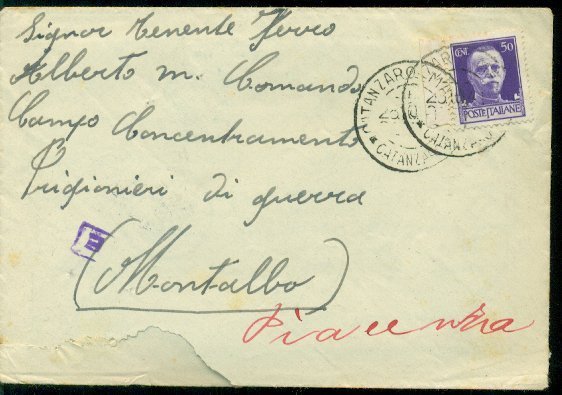 Signor Tenente Ferro
Alberto m. Comando
Campo Concentramento
Prigionieri di guerra
(Montalbo)
Piacenza
CENT. 50
POSTE ITALIANE
CATANZARO
CATANZARO
E